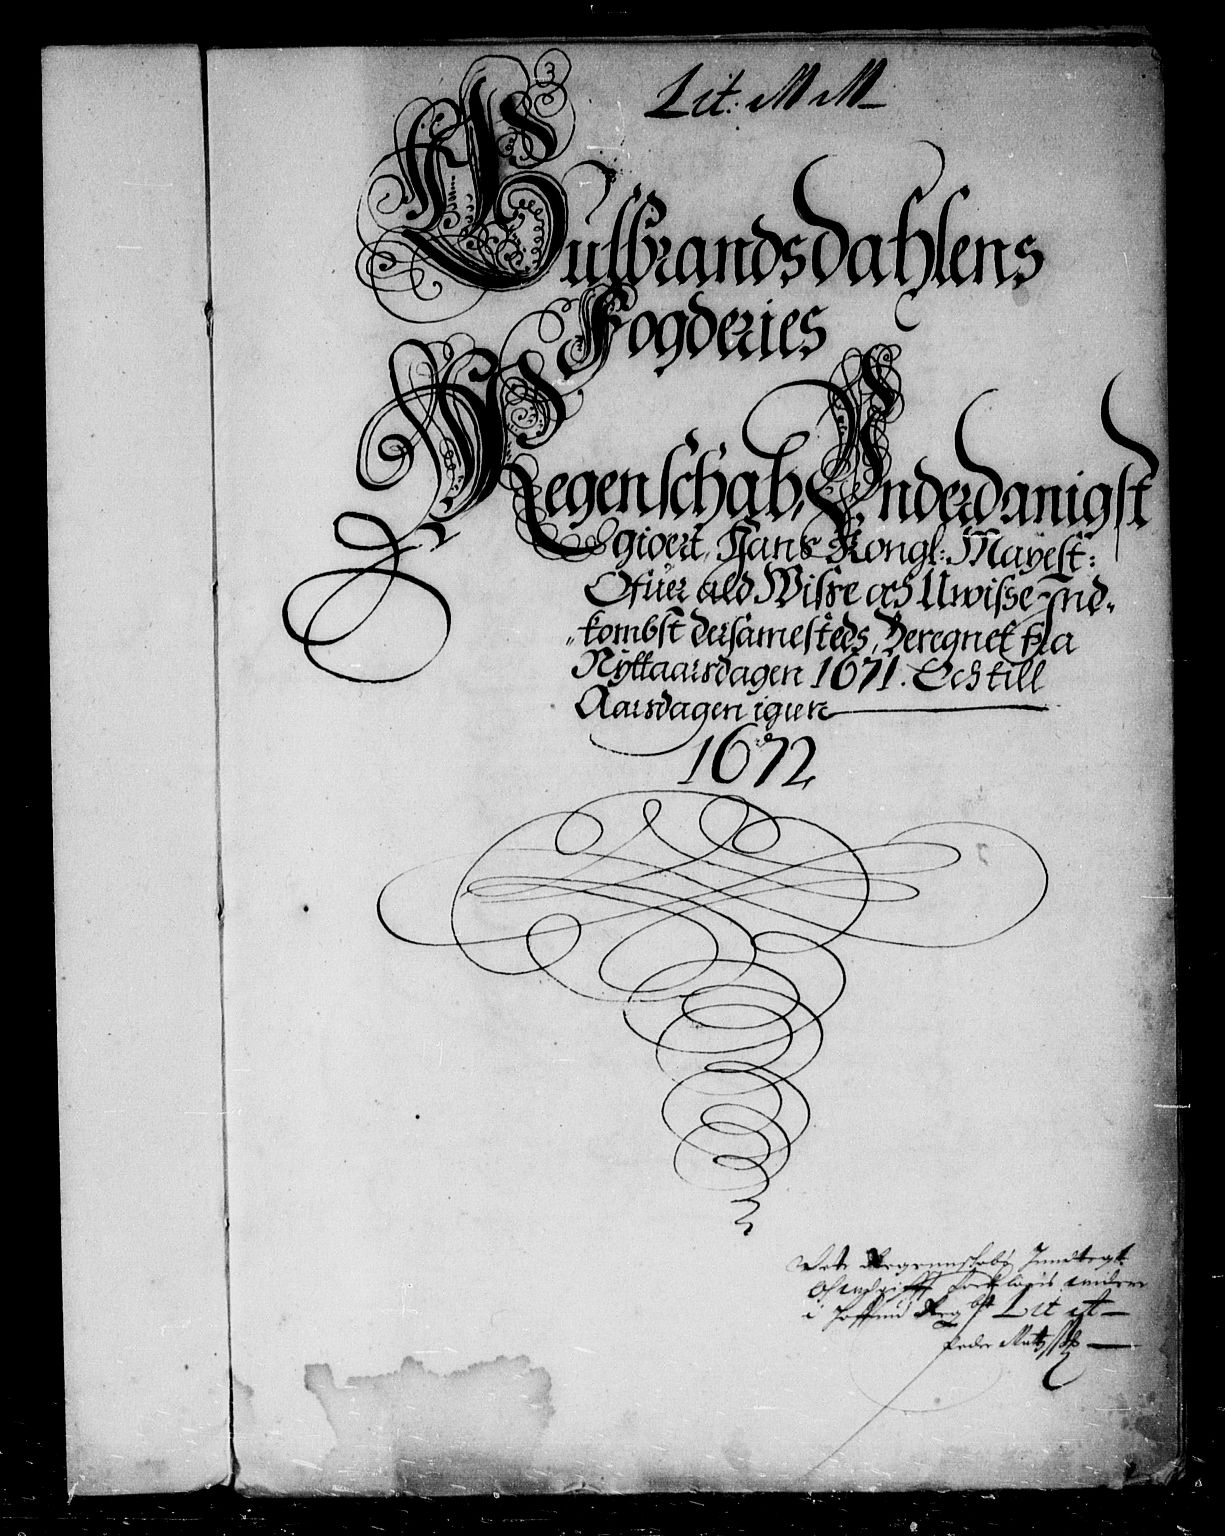 Lit: M M
Gulbrandsdahlens
Fogderies
Regenschab, Underdanigst
giort, Hans Kongl: Mayest:
Ofuer ald Wisse och Uwisse Ind-
kombst dersamesteds, Beregnet fra
Nyttaarsdagen 1671. Och till
Aarsdagen igien
1672
Dete Regennschabs Inndtegt
i Lit
Peder